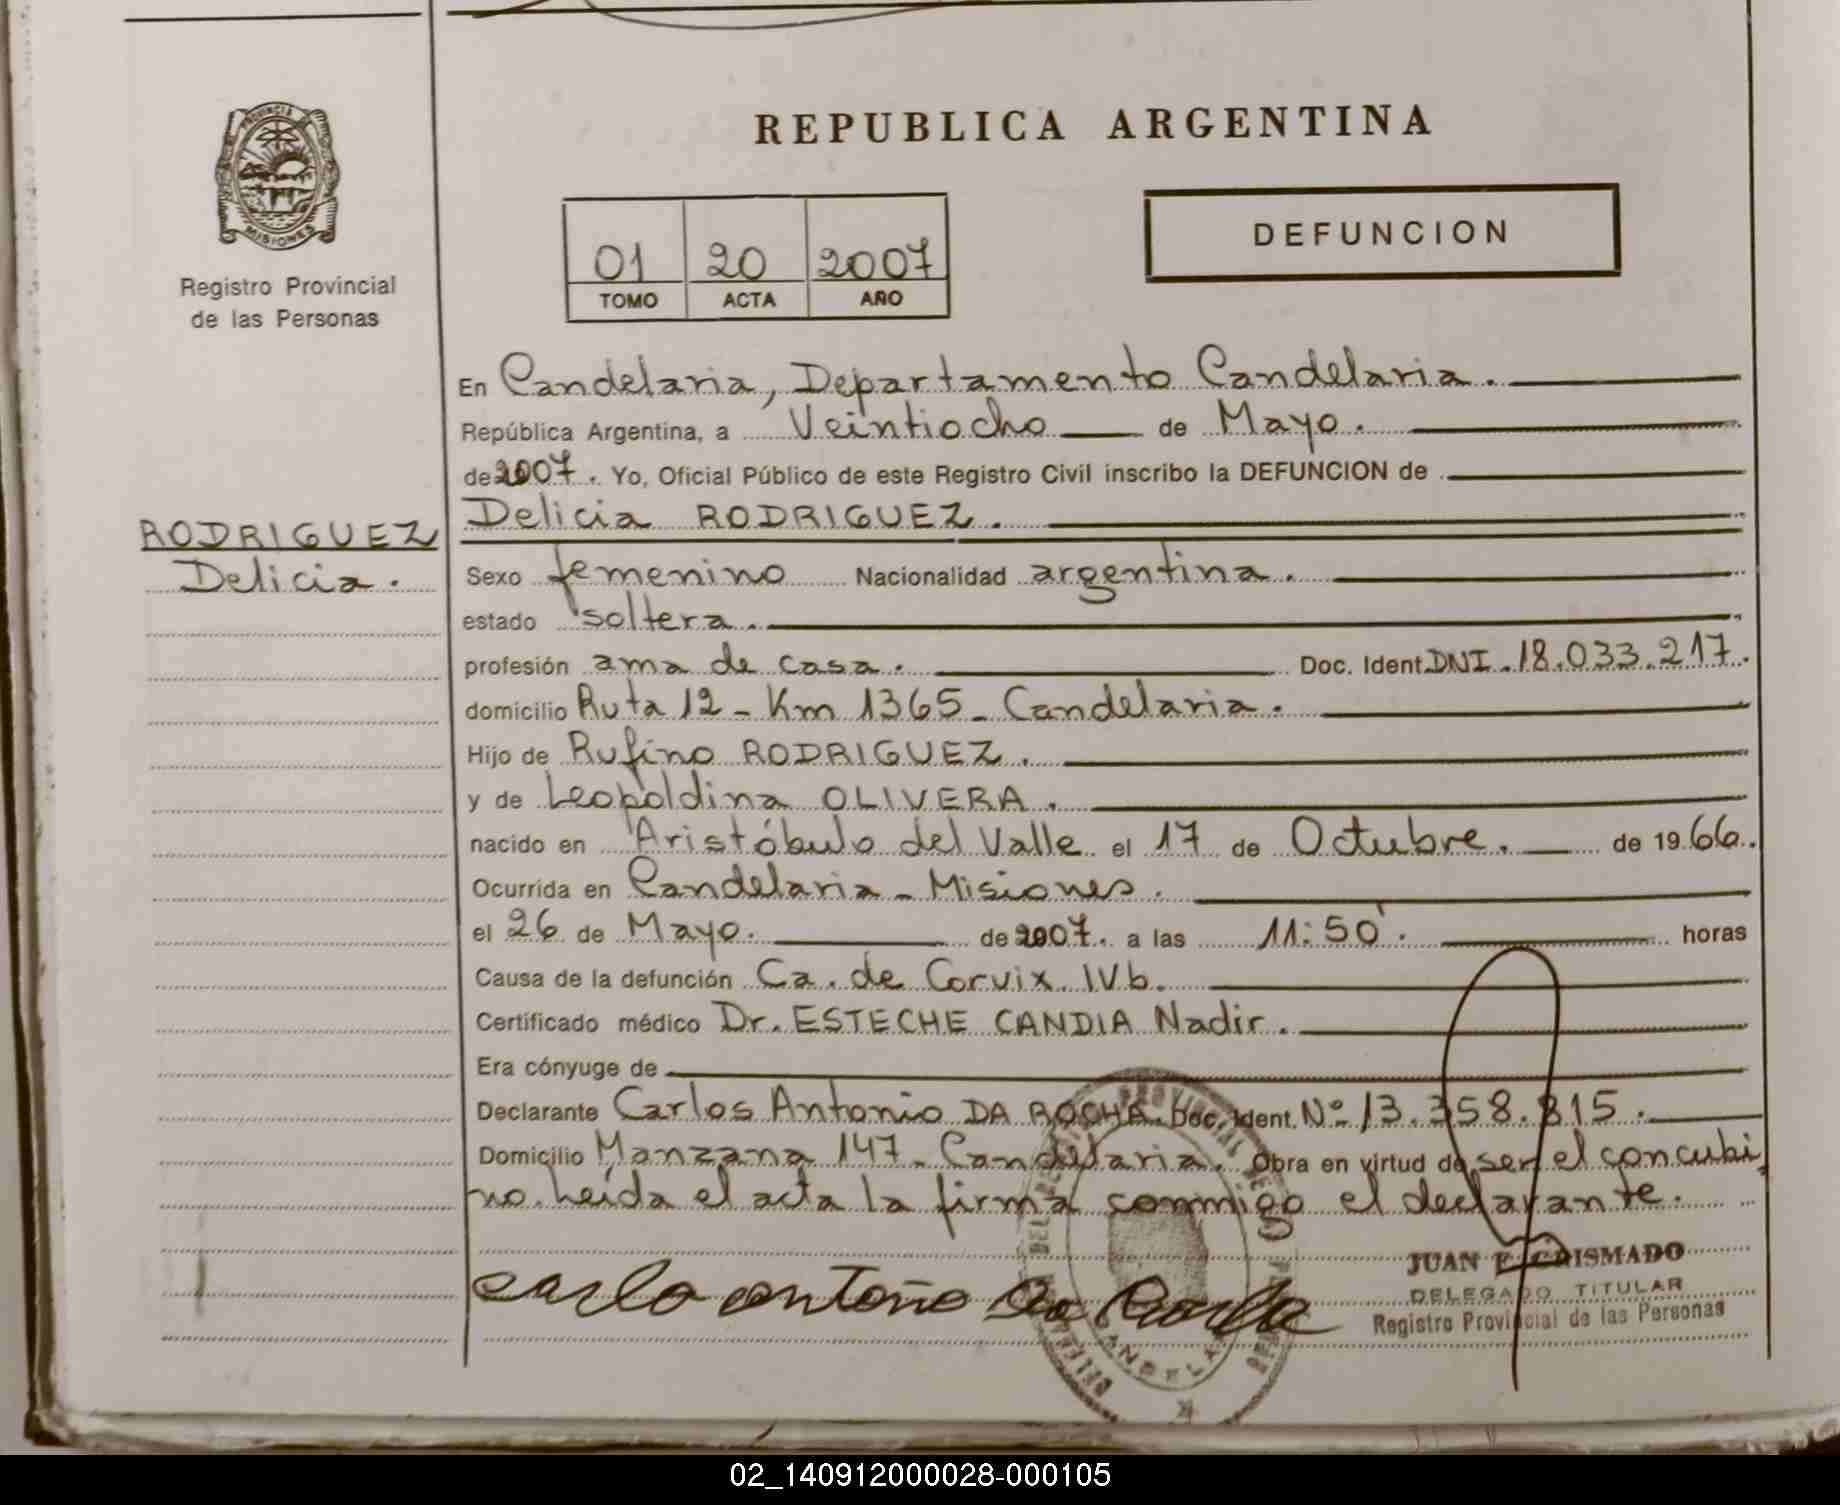 PROVINCIA
MISIONES
Registro Provincial
de las Personas
REPUBLICA ARGENTINA
01 20 2007
TOMO ACTA AÑO
DEFUNCION
En Candelaria, Departamento Candelaria.
República Argentina, a Veintiocho de Mayo.
de 2007. Yo, Oficial Público de este Registro Civil inscribo la DEFUNCION de
Delicia RODRIGUEZ.
RODRIGUEZ
Delicia.
Sexo femenino Nacionalidad argentina.
estado soltera.
profesión ama de casa. Doc. Ident. DNI. 18.033.217.
domicilio Ruta 12 - Km 1365 - Candelaria.
Hijo de Rufino RODRIGUEZ.
y de Leopoldina OLIVERA.
nacido en Aristóbulo del Valle el 17 de Octubre. de 1966.
Ocurrida en Candelaria - Misiones.
el 26 de Mayo. de 2007. a las 11:50'. horas
Causa de la defunción Ca. de Corvix IVb.
Certificado médico Dr. ESTECHE CANDIA Nadir.
Era cónyuge de
Declarante Carlos Antonio DA ROCHA. Doc. Ident. Nº 13.358.815.
Domicilio Manzana 147 - Candelaria. Obra en virtud de ser el concubi
no. Leída el acta la firma conmigo el declarante.
JUAN E. CRISMADO
DELEGADO TITULAR
Registro Provincial de las Personas
02_140912000028-000105